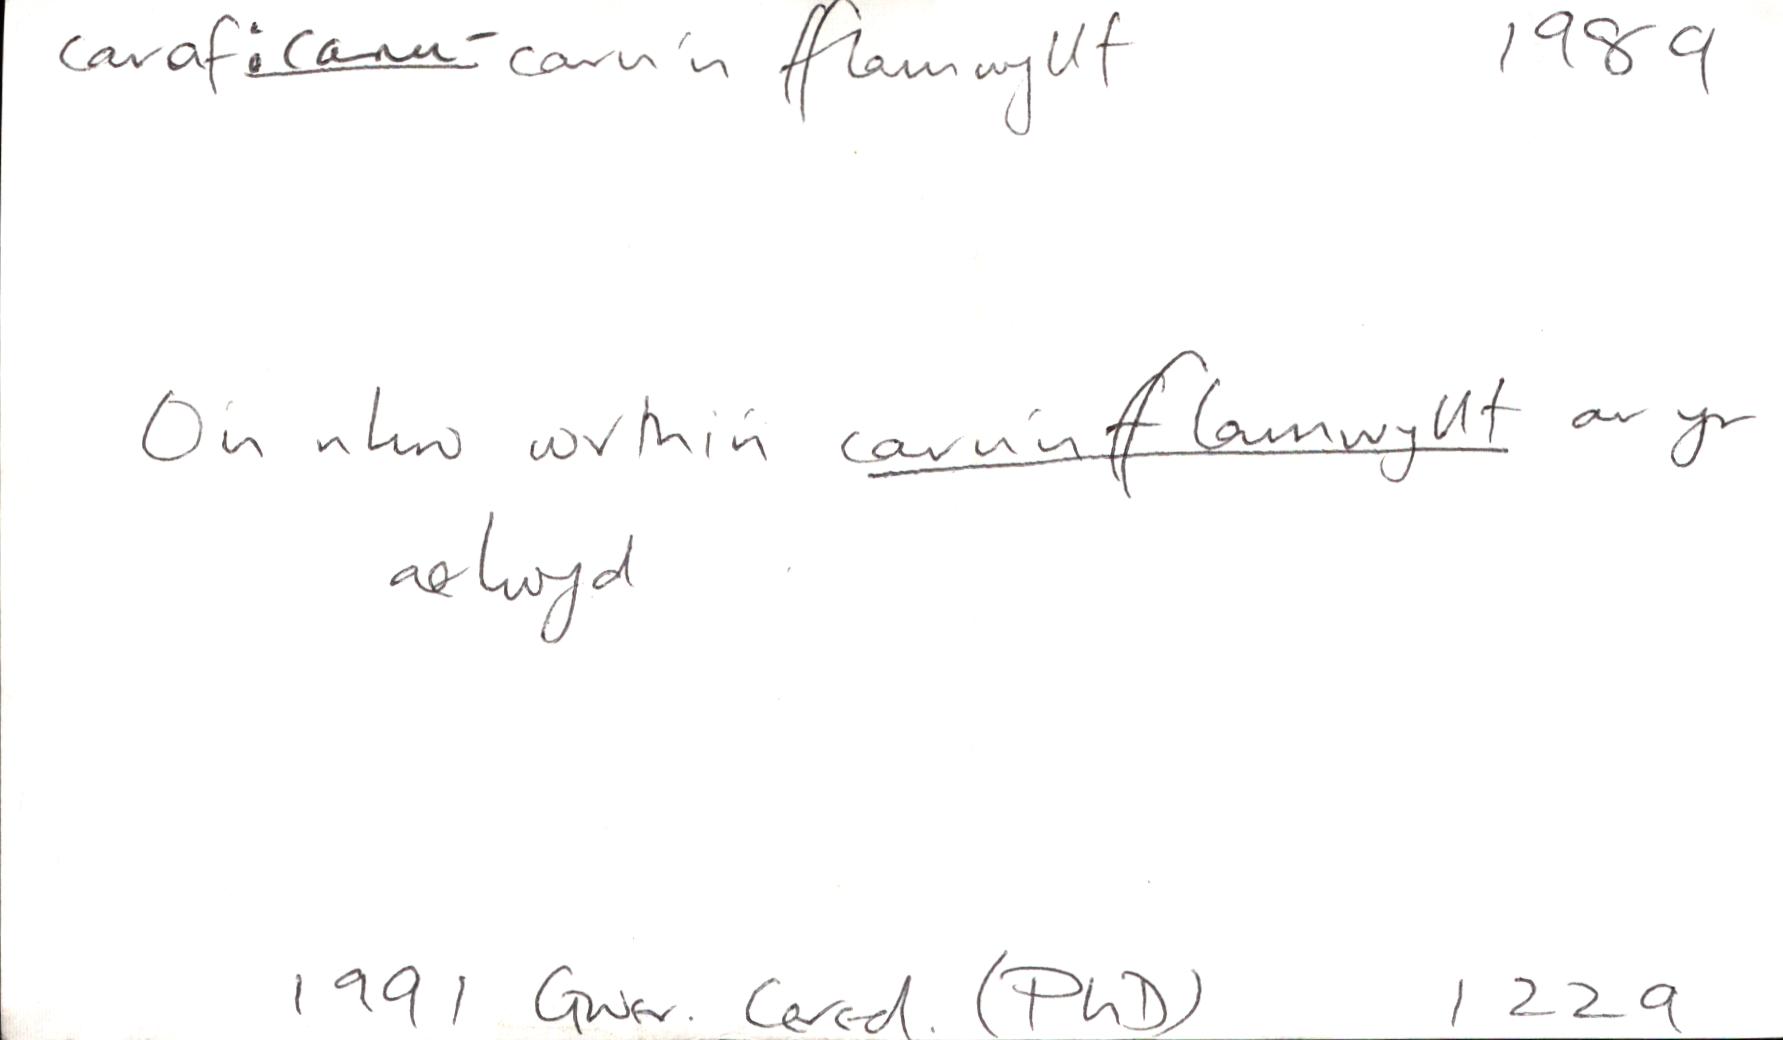 caraf: caru - caru'n fflamwyllt 1989
Oin nhw wrthiii caru'n fflamwyllt ar yr
aelwyd
1991 Gwer. Cered. (PhD) 1229